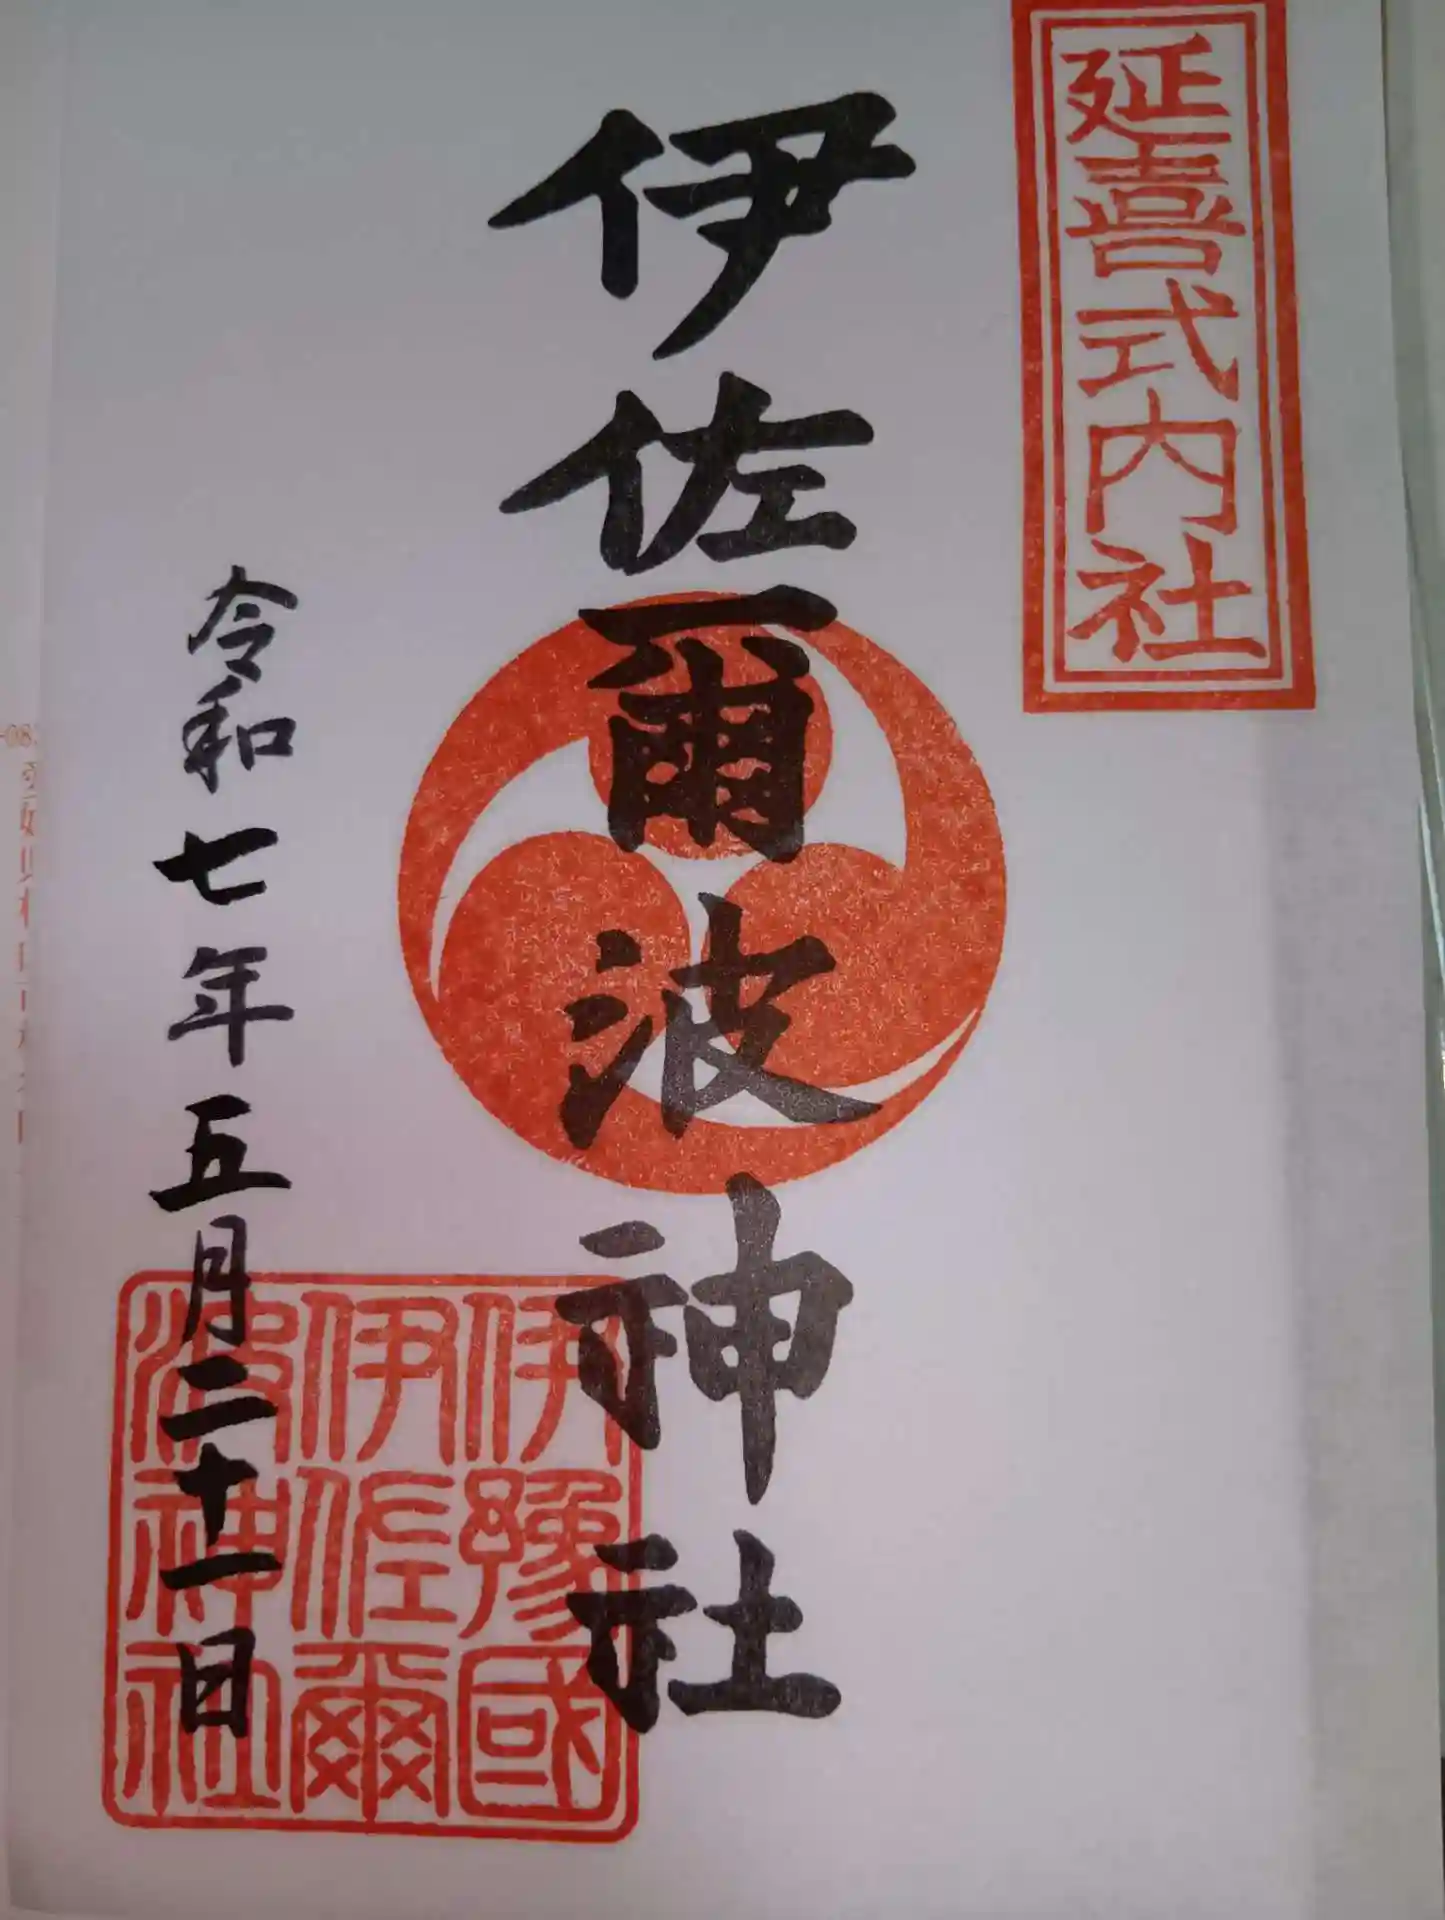 延喜式内社
伊佐爾波神社
令和七年五月二十一日
伊豫國
伊佐爾
波神社